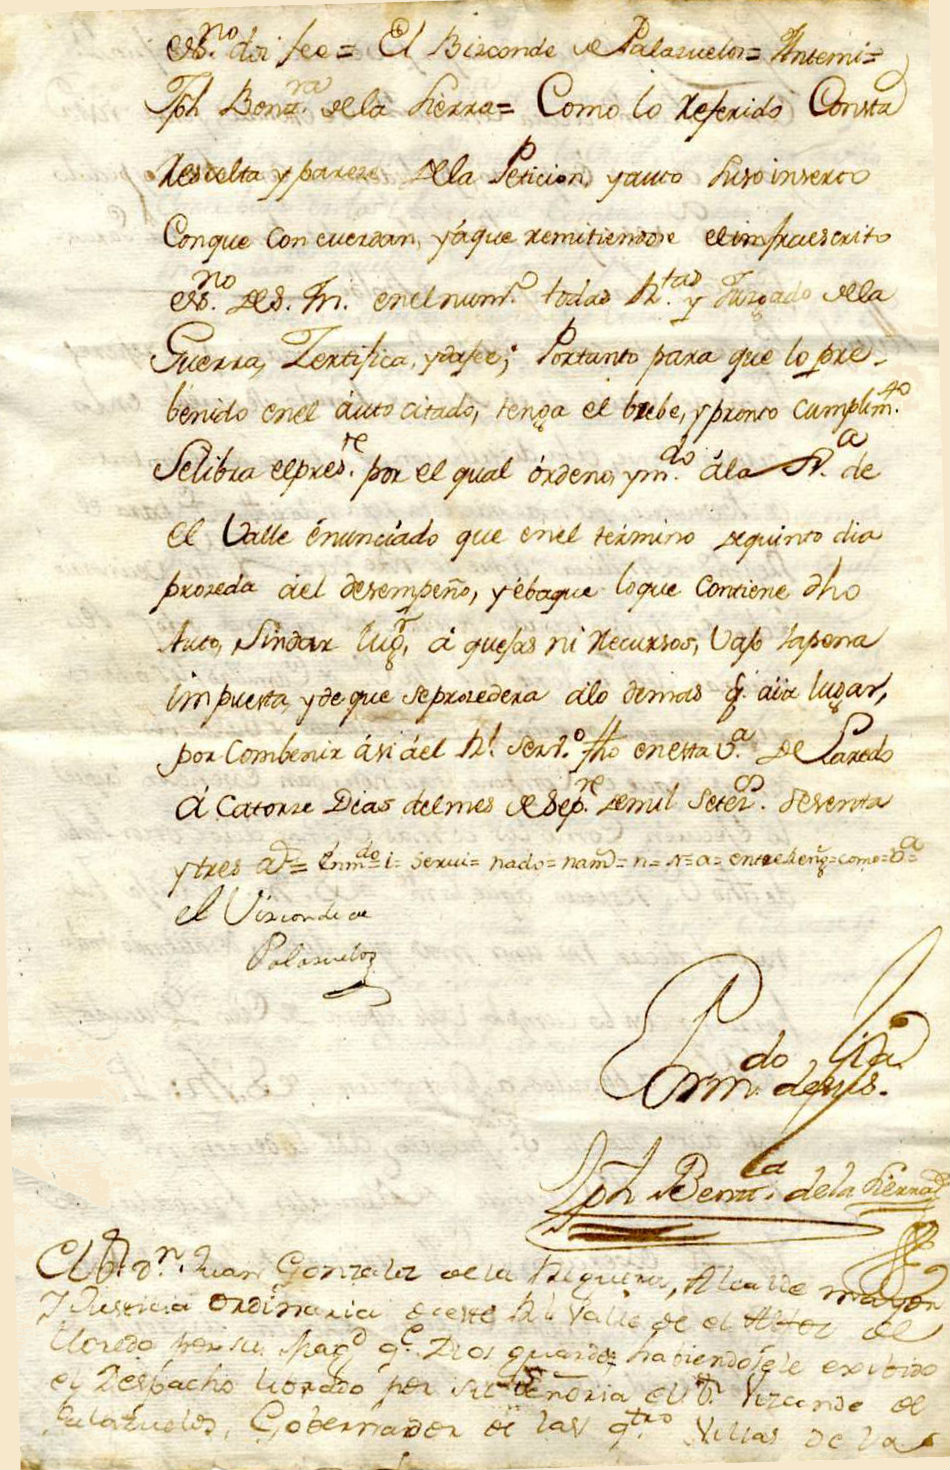 ess.no doi fee = El Bizconde de Palazuelos = Antemi =
Jph Bentra. de la Sierra = Como lo Referido Consta
Resulta y pareze de la Peticion, y auto suso inserto
Conque Concuerdan, y a que remitiendose el infraescrito
ess.no de S. M. en el num.o todas Rtas. y Juzgado de la
Guerra, Zertifica, y da fee; Portanto para que lo pre-
benido en el auto citado, tenga el brebe, y pronto Cumplim.to
Selibra el pres.te por el qual órdeno, y m.do á la Jv.a de
el Valle énunciado que en el término de quinto dia
prozeda á el desempeño, y ebaque lo que Contiene dho
Auto, Sin dar lugr, á quejas ni Recursos, Vajo la pena
impuesta, y de que se prozedera á lo demas q. aia lugar,
por Combenir ási á el Rl. Serv.o fho en esta v.a de Laredo
á Catorze Dias del mes de Sep.re de mil Setez.os Sesenta
y tres a.s = Enm.do = i = servi = nado = nam = n = = a = entre = como = v.a =
el Vizconde de
Palazuelos
Por m.do de su s.ria
Jph Bent.ra de la Sierra
El S. D.n Juan Gonzalez de la Reguera, Alcalde mayor
Y Justicia ordinaria de este Rl Valle de el de
Lloredo por su Mag.d q.e Dios guarde = habiendosele exivido
el Despacho librado por su señoria el S.r Vizconde de
Palazuelos, Gobernador de las q.tro Villas de la